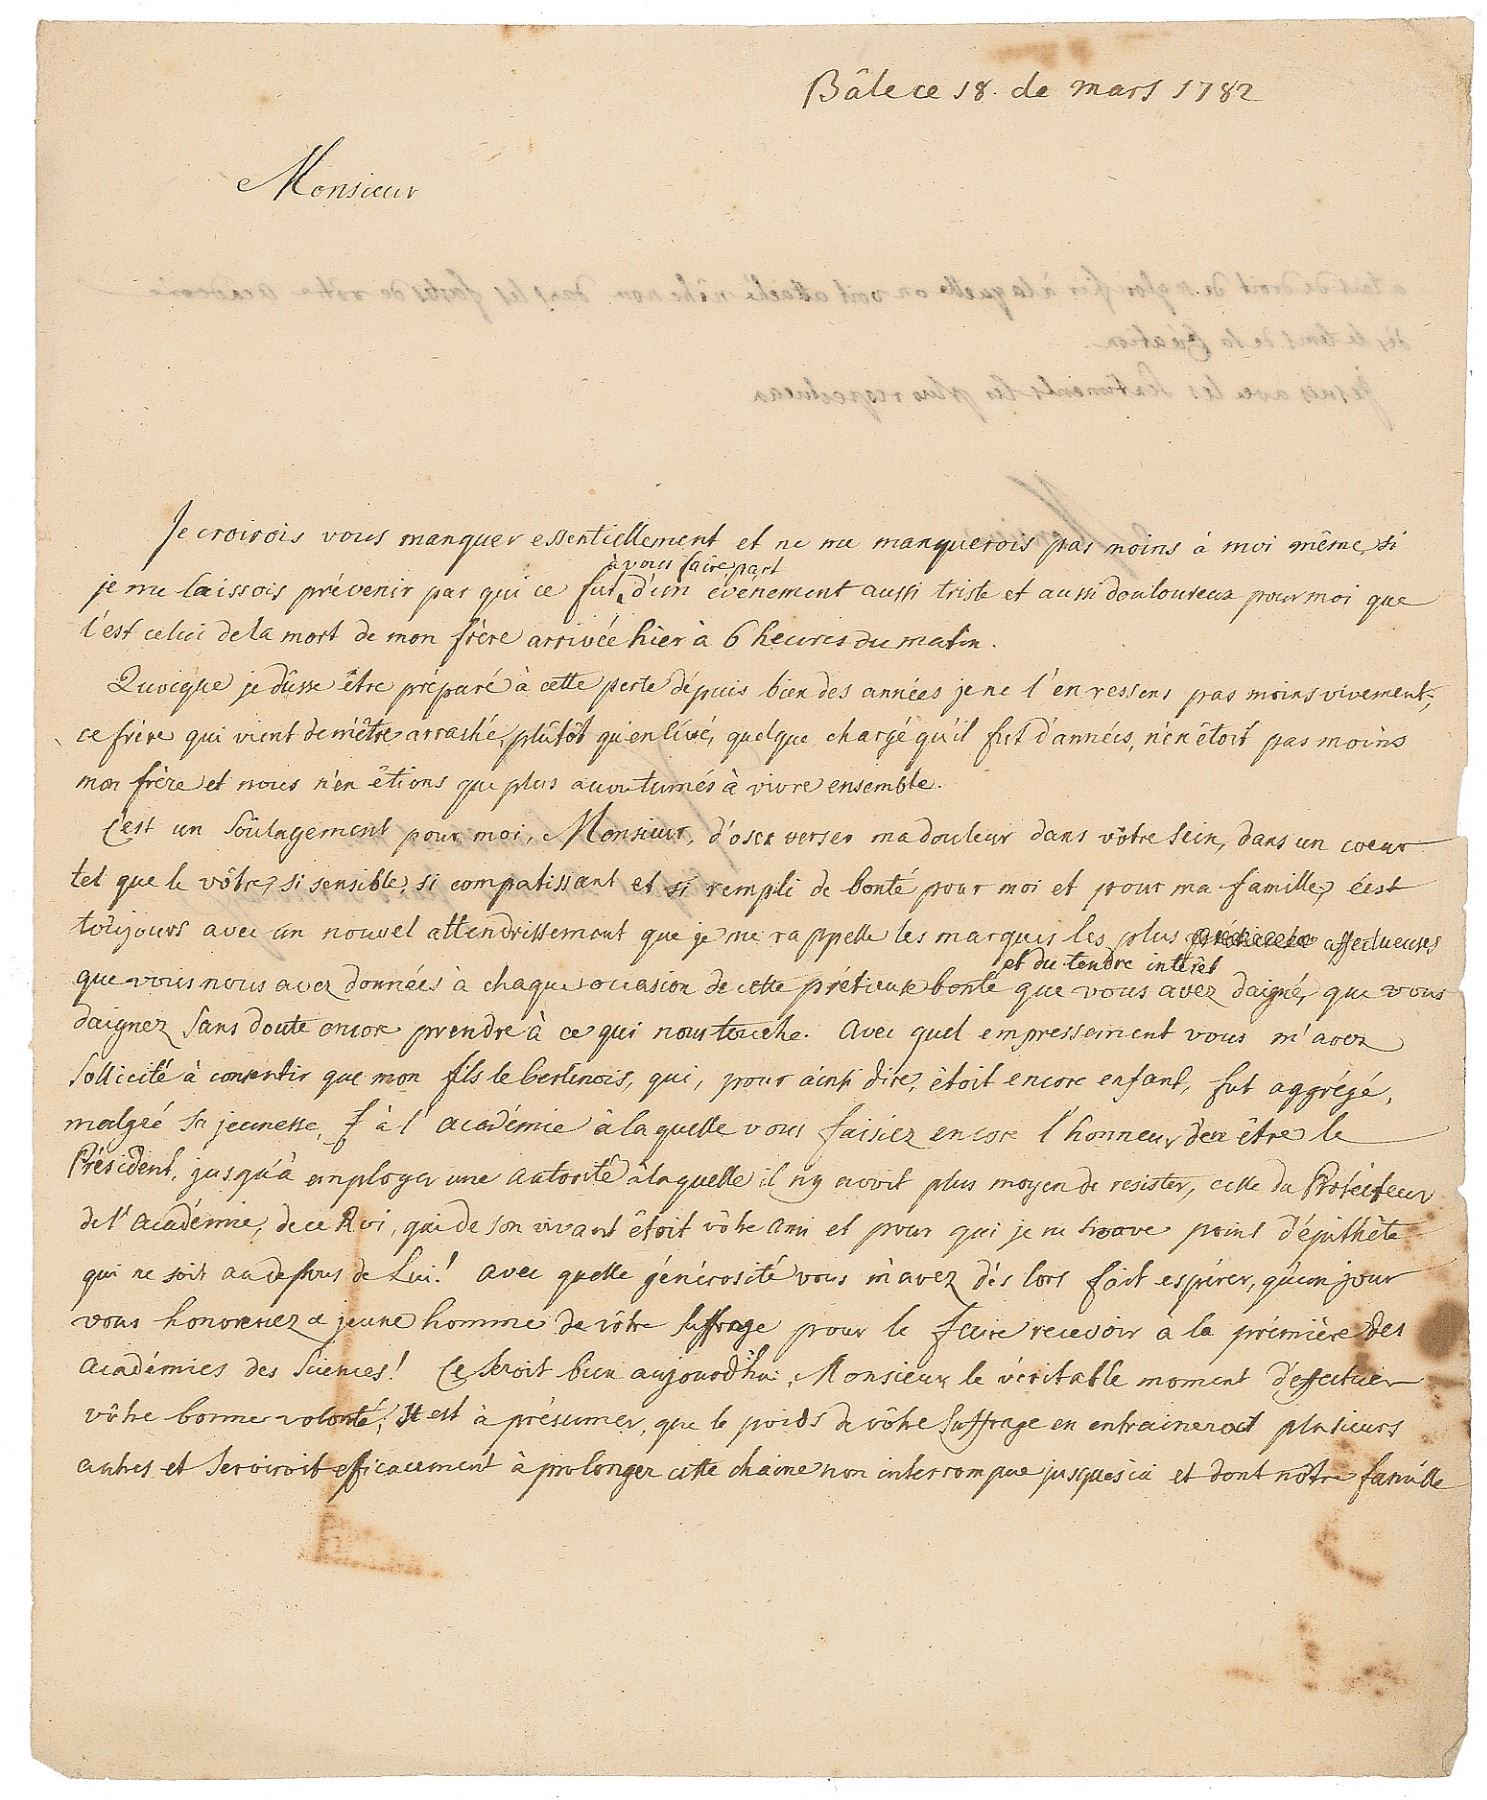 Bâle ce 18. de mars 1782
Monsieur
Je croirois vous manquer essentiellement et ne me manquerois pas moins à moi même, si
à vous faire part
je me laissois prévenir par qui ce fut, d'un événement aussi triste et aussi douloureux pour moi que
l'est celui de la mort de mon frère arrivée hier à 6 heures du matin.
Quoique je dusse être préparé à cette perte dépuis bien des années je ne l'en ressens pas moins vivement;
ce frère qui vient de m'être arraché, plûtôt qu'enlévé, quelque chargé qu'il fut d'années, n'en êtoit pas moins
mon frère et nous n'en êtions que plus accoutumés à vivre ensemble.
C'est un soûlagement pour moi, Monsieur, d'oser verser ma douleur dans vôtre sein, dans un coeur
tel que le vôtre, si sensible, si compatissant et si rempli de bonté pour moi et pour ma famille; c'est
toûjours avec un nouvel attendrissement que je me rappelle les marques les plus affectueuses
et du tendre intérêt
que vous nous avez données à chaque occasion de cette prétieuse bonté que vous avez daigné, que vous
daignez sans doute encore prendre à ce qui nous touche. Avec quel empressement vous m'avez
sollicité à consentir que mon fils le berlinois, qui, pour ainsi dire, êtoit encore enfant, fut aggrégé,
malgré sa jeunesse, à l'académie à laquelle vous faisiez encore l'honneur d'en être le
Président, jusqu'à employer une autorité à laquelle il n'y avoit plus moyen de resister, celle du Protecteur
de l'académie, de ce Roi, qui de son vivant êtoit vôtre ami et pour qui je ne trouve point d'épithète
qui ne soit au dessous de Lui! avec quelle générosité vous m'avez dès lors fait espérer, qu'un jour
vous honoreriez ce jeune homme de vôtre suffrage pour le faire recevoir à la prémière des
académies des Sciences! Ce seroit bien aujourd'hui, Monsieur, le véritable moment d'effectuer
vôtre bonne volonté; Il est à présumer, que le poids de vôtre suffrage en entraineroit plusieurs
autres et serviroit efficacement à prolonger cette chaine non interrompue jusques ici et dont nôtre famille